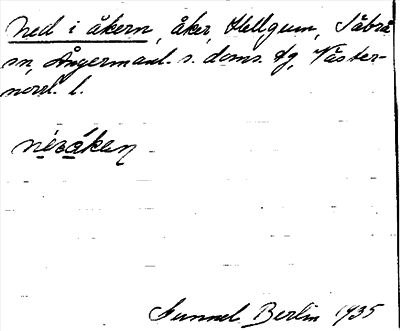 Ned i åkern, åker, Hellgum, Säbrå
sn, Ångermanl. s. doms. tg, Väster-
norrl. l.
Gunnel Berlin 1935